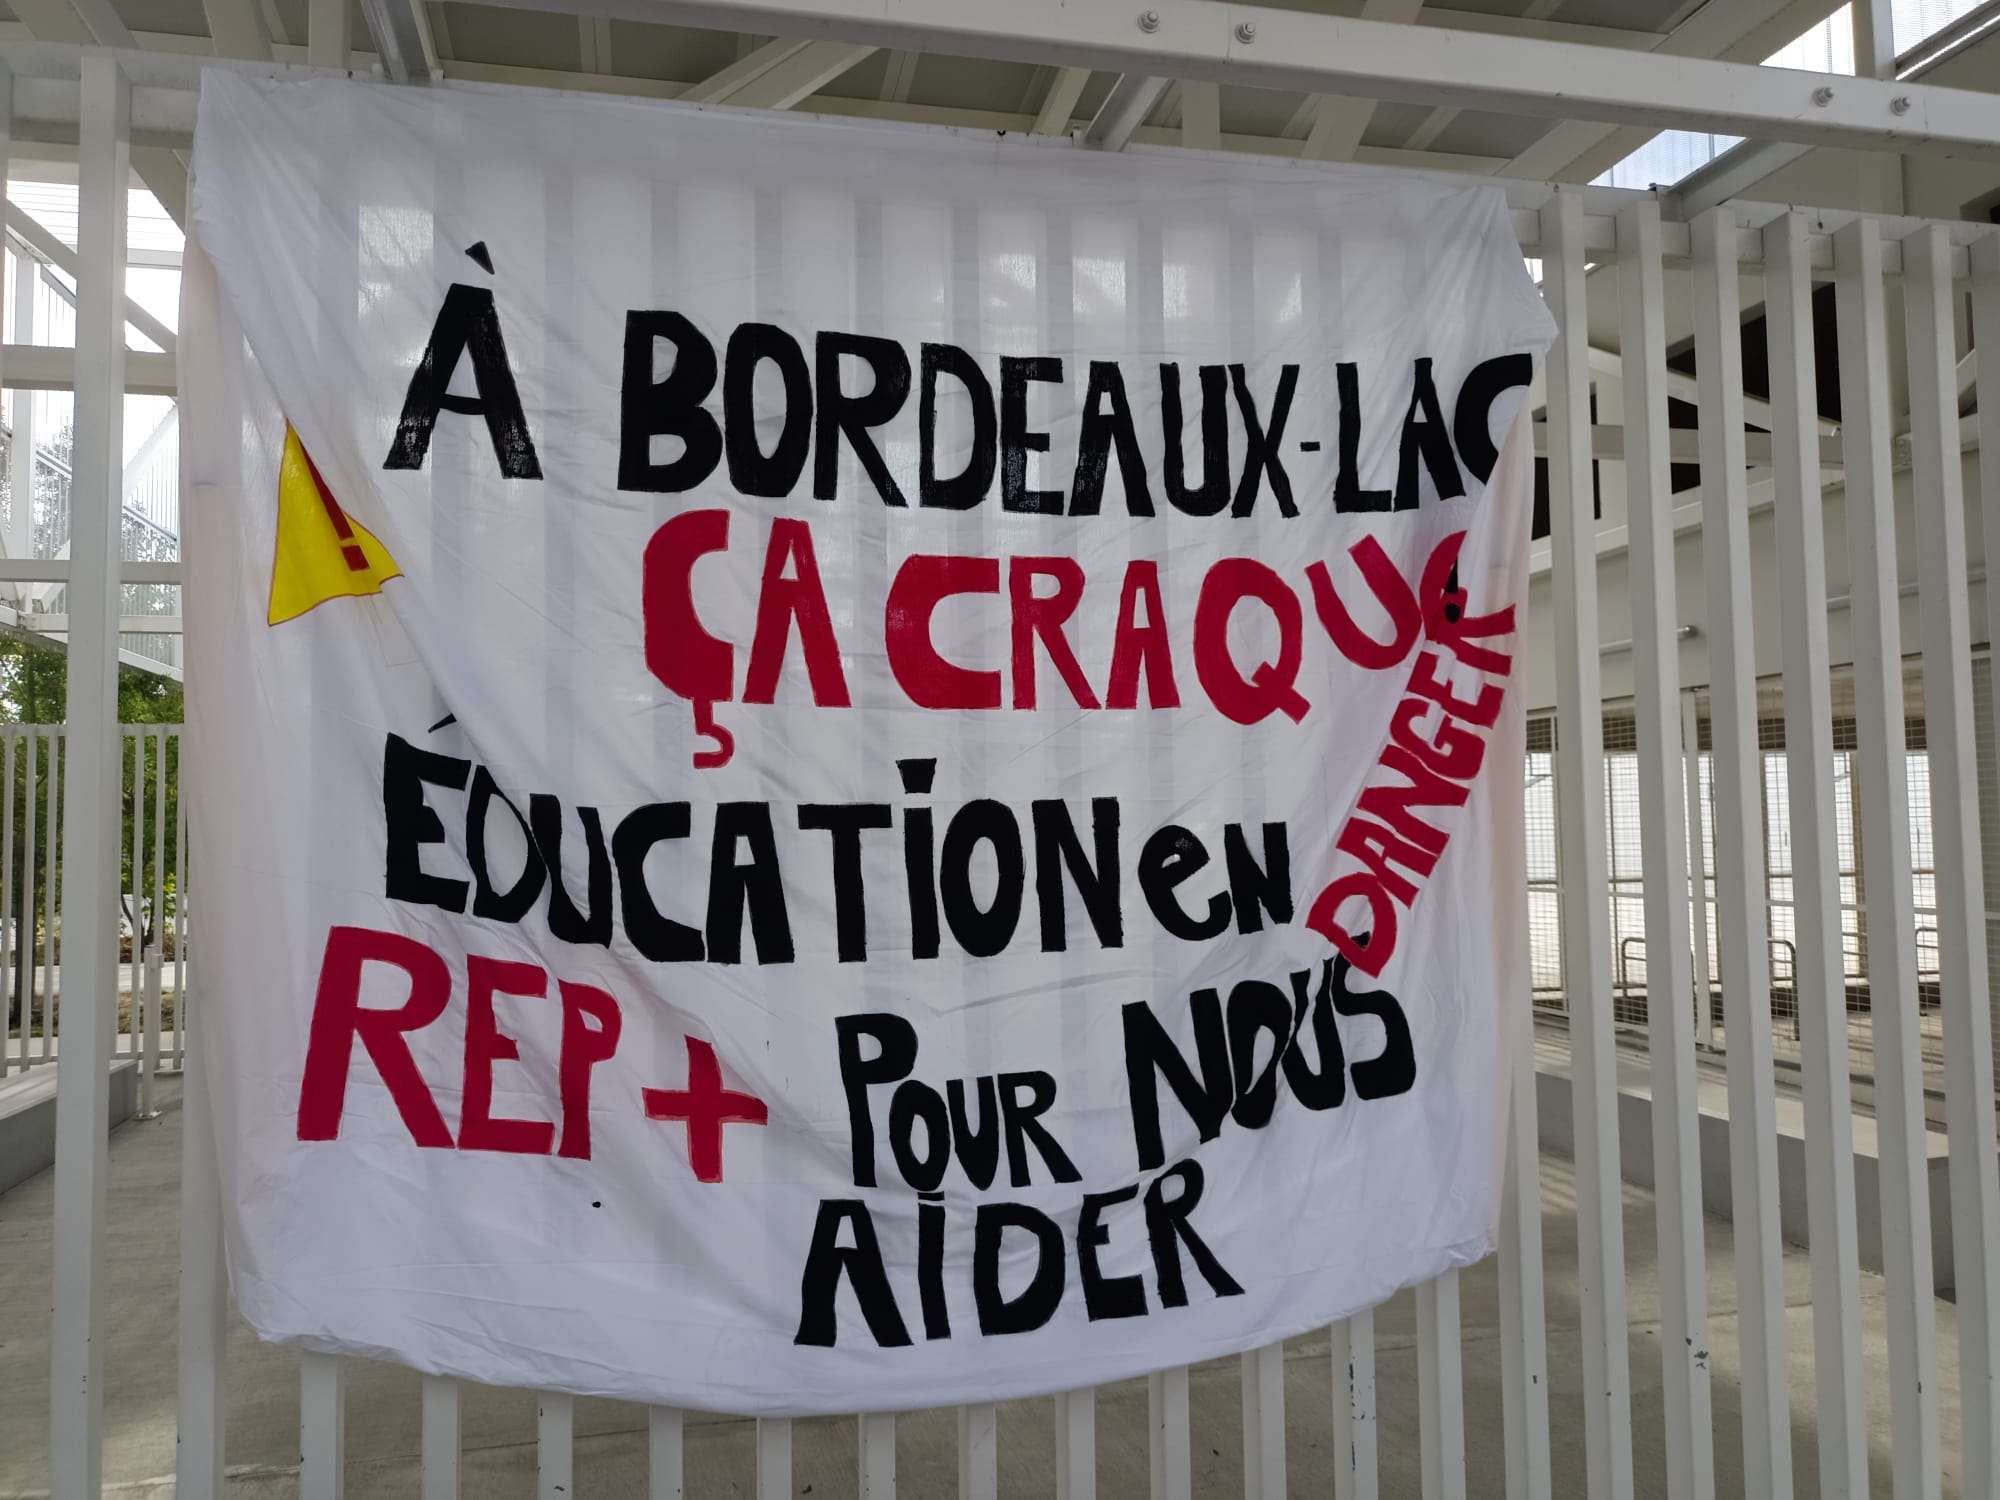 !
À BORDEAUX-LAC
ÇA CRAQUE !
ÉDUCATION EN DANGER
REP + POUR NOUS
AIDER